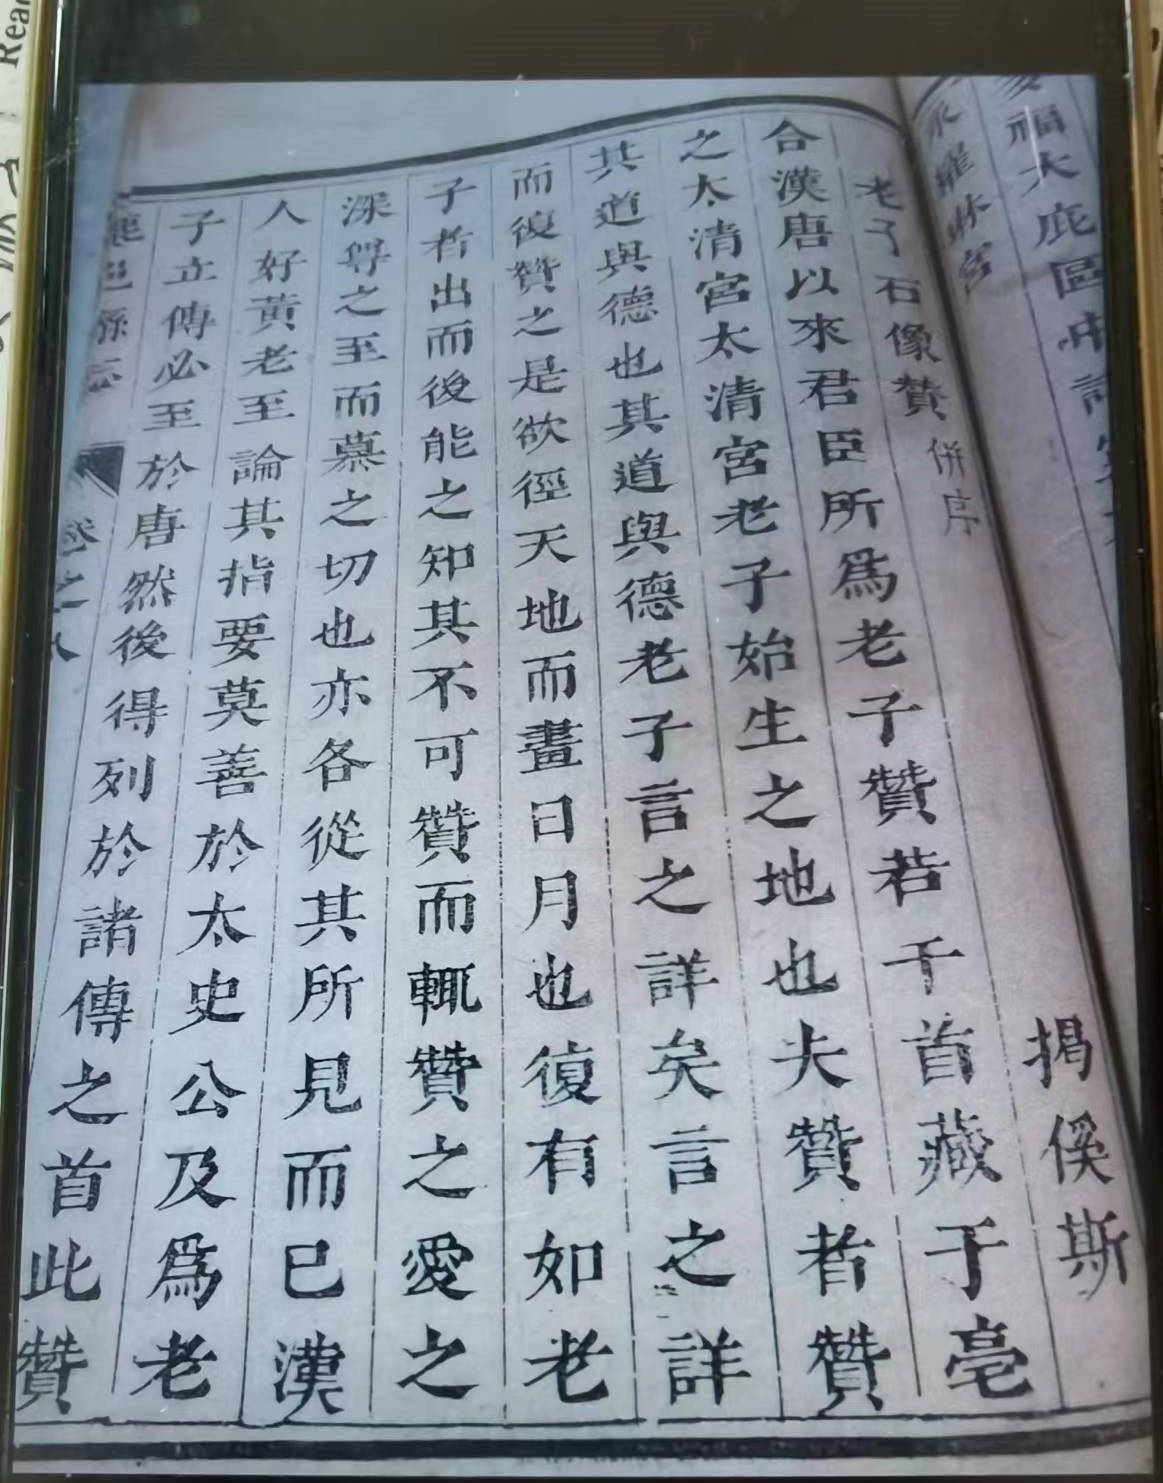 受福大庇區中
永耀琳宮
老子石像贊 併序 揭傒斯
合漢唐以來君臣所爲老子贊若干首藏于亳
之太清宮太清宮老子始生之地也夫贊者贊
其道與德也其道與德老子言之詳矣言之詳
而復贊之是欲徑天地而畫日月也復有如老
子者出而後能之知其不可贊而輒贊之愛之
深尊之至而慕之切也亦各從其所見而已漢
人好黃老至論其指要莫善於太史公及爲老
子立傳必至於唐然後得列於諸傳之首此贊
鹿邑縣志 卷之八
Read